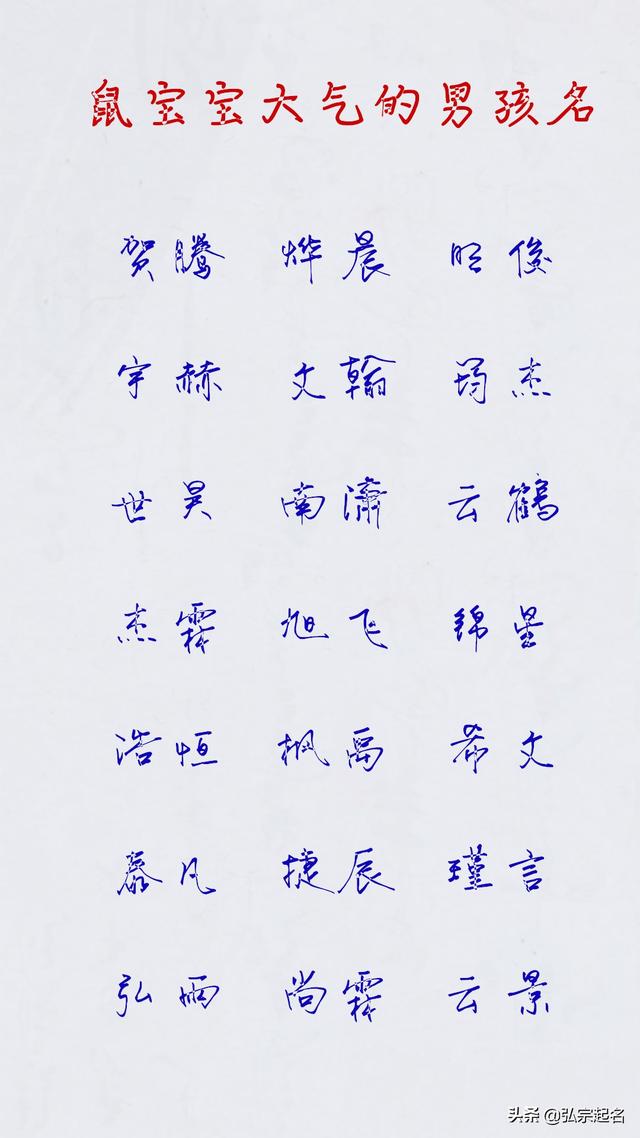 鼠宝宝大气的男孩名
贺腾 烨晨 明俊
宇赫 文翰 筠杰
世昊 南潇 云鹤
杰霖 旭飞 锦星
浩恒 枫禹 希文
凡 捷辰 瑾言
弘雨 尚霖 云景
头条 @弘宗起名